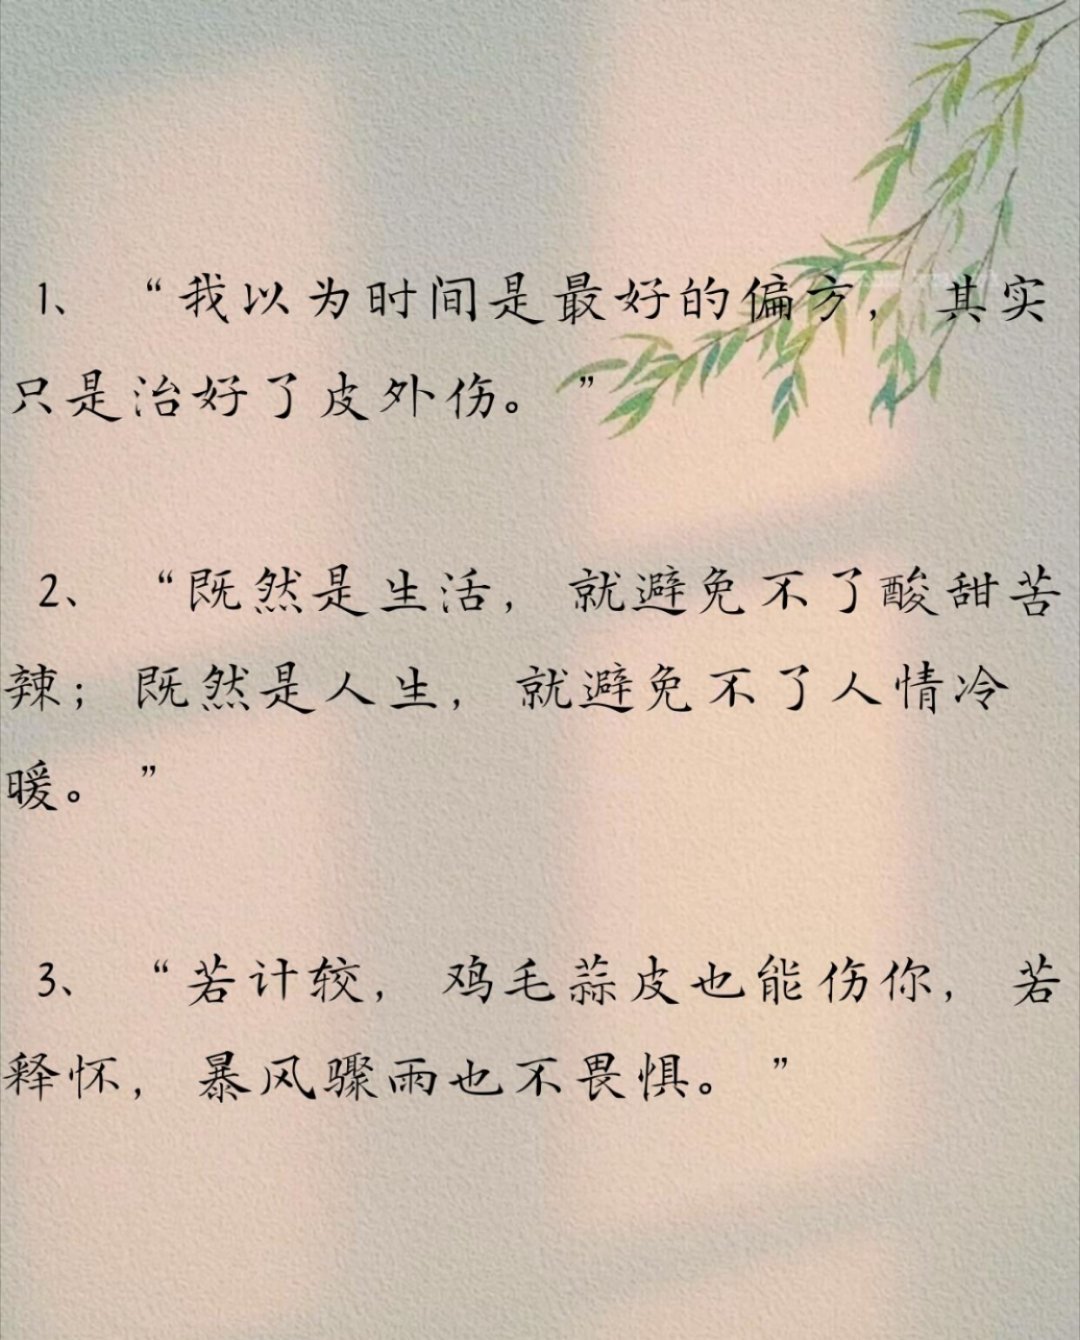 1、“我以为时间是最好的偏方，其实
只是治好了皮外伤。”
2、“既然是生活，就避免不了酸甜苦
辣；既然是人生，就避免不了人情冷
暖。”
3、“若计较，鸡毛蒜皮也能伤你，若
释怀，暴风骤雨也不畏惧。”